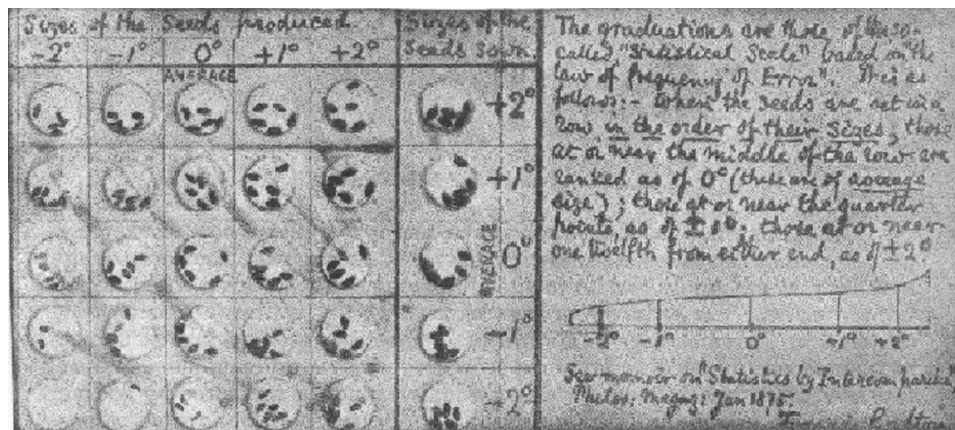 Sizes of the Seeds produced
-2° -1° 0° +1° +2°
AVERAGE
Sizes of the
Seeds Sown.
+2°
+1°
AVERAGE 0°
-1°
-2°
The graduations are those of the so-
called "Statistical Scale" based on "the
law of frequency of Error". It is as
follows:- Where the seeds are set in a
row in the order of their sizes, those
at or near the middle of the row are
ranked as of 0° (these are of average
size); those at or near the quarter
points, as of ± 1°; those at or near
one twelfth from either end, as of ±2°
-2° -1° 0° +1° +2°
See memoir on "Statistics by Intercomparison",
Philos: Magng: Jan 1875.
Francis Galton